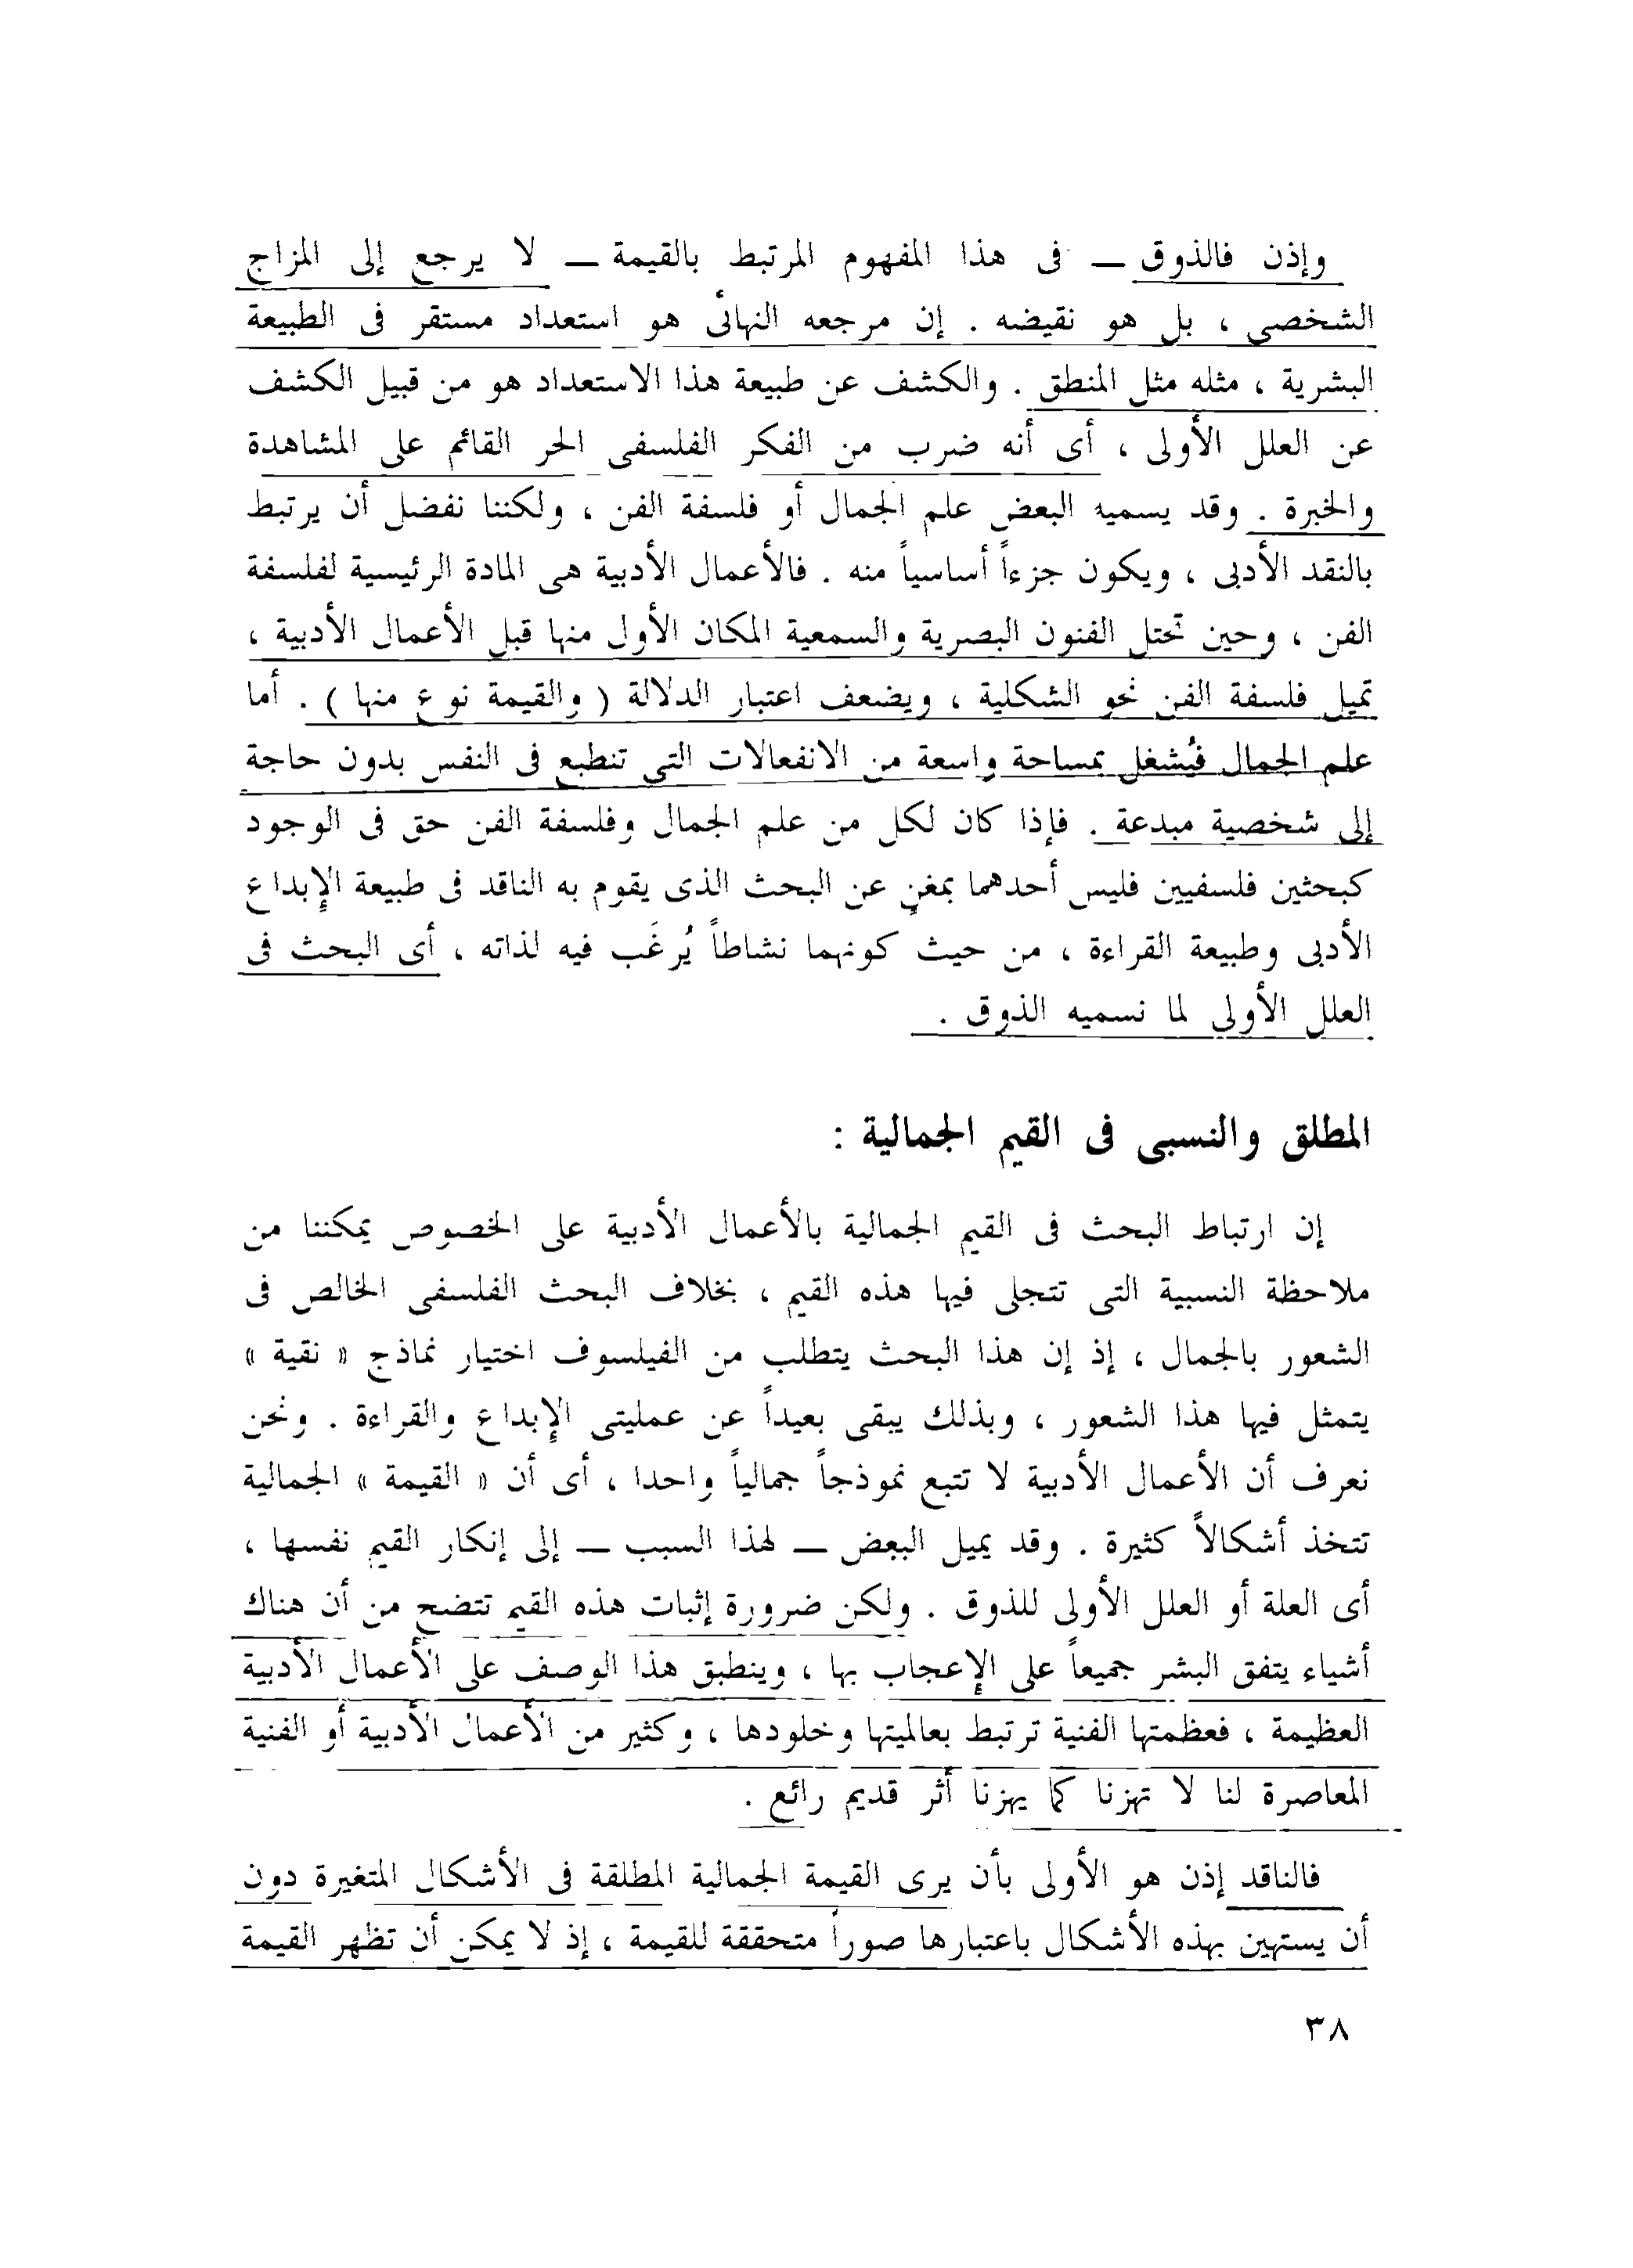 وإذن فالذوق — فى هذا المفهوم المرتبط بالقيمة — لا يرجع إلى المزاج
الشخصى ، بل هو نقيضه . إن مرجعه النهائى هو استعداد مستقر فى الطبيعة
البشرية ، مثله مثل المنطق . والكشف عن طبيعة هذا الاستعداد هو من قبيل الكشف
عن العلل الأولى ، أى أنه ضرب من الفكر الفلسفى الحر القائم على المشاهدة
والخبرة . وقد يسميه البعض علم الجمال أو فلسفة الفن ، ولكننا نفضل أن يرتبط
بالنقد الأدبى ، ويكون جزءاً أساسياً منه . فالأعمال الأدبية هى المادة الرئيسية لفلسفة
الفن ، وحين تحتل الفنون البصرية والسمعية المكان الأول منها قبل الأعمال الأدبية ،
تميل فلسفة الفن نحو الشكلية ، ويضعف اعتبار الدلالة ( والقيمة نوع منها ) . أما
علم الجمال فيُشغل بمساحة واسعة من الانفعالات التى تنطبع فى النفس بدون حاجة
إلى شخصية مبدعة . فإذا كان لكل من علم الجمال وفلسفة الفن حق فى الوجود
كبحثين فلسفيين فليس أحدهما بمغنٍ عن البحث الذى يقوم به الناقد فى طبيعة الإبداع
الأدبى وطبيعة القراءة ، من حيث كونهما نشاطاً يُرغَب فيه لذاته ، أى البحث فى
العلل الأولى لما نسميه الذوق .
المطلق والنسبى فى القيم الجمالية :
إن ارتباط البحث فى القيم الجمالية بالأعمال الأدبية على الخصوص يمكننا من
ملاحظة النسبية التى تتجلى فيها هذه القيم ، بخلاف البحث الفلسفى الخالص فى
الشعور بالجمال ، إذ إن هذا البحث يتطلب من الفيلسوف اختيار نماذج « نقية »
يتمثل فيها هذا الشعور ، وبذلك يبقى بعيداً عن عمليتى الإبداع والقراءة . ونحن
نعرف أن الأعمال الأدبية لا تتبع نموذجاً جمالياً واحدا ، أى أن « القيمة » الجمالية
تتخذ أشكالاً كثيرة . وقد يميل البعض — لهذا السبب — إلى إنكار القيم نفسها ،
أى العلة أو العلل الأولى للذوق . ولكن ضرورة إثبات هذه القيم تتضح من أن هناك
أشياء يتفق البشر جميعاً على الإعجاب بها ، وينطبق هذا الوصف على الأعمال الأدبية
العظيمة ، فعظمتها الفنية ترتبط بعالميتها وخلودها ، وكثير من الأعمال الأدبية أو الفنية
المعاصرة لنا لا تهزنا كما يهزنا أثر قديم رائع .
فالناقد إذن هو الأولى بأن يرى القيمة الجمالية المطلقة فى الأشكال المتغيرة دون
أن يستهين بهذه الأشكال باعتبارها صوراً متحققة للقيمة ، إذ لا يمكن أن تظهر القيمة
٣٨